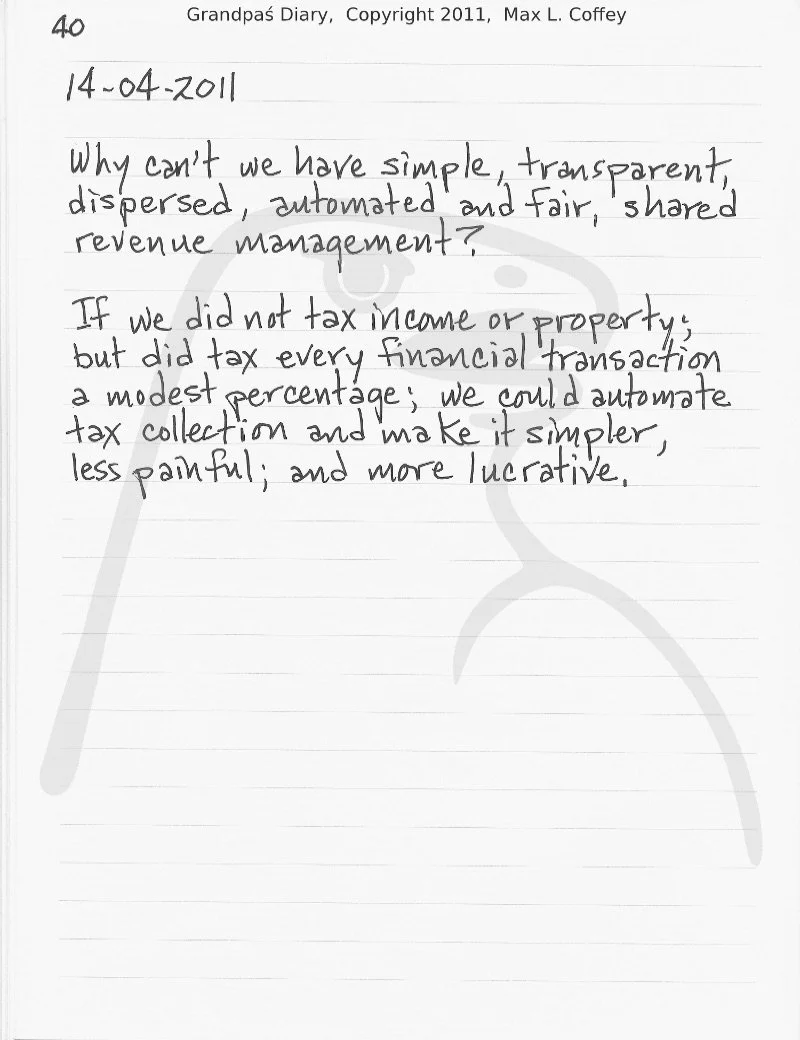 Grandpaś Diary, Copyright 2011, Max L. Coffey
40
14-04-2011
Why can't we have simple, transparent,
dispersed, automated and fair, shared
revenue management?
If we did not tax income or property;
but did tax every financial transaction
a modest percentage; we could automate
tax collection and make it simpler,
less painful; and more lucrative.